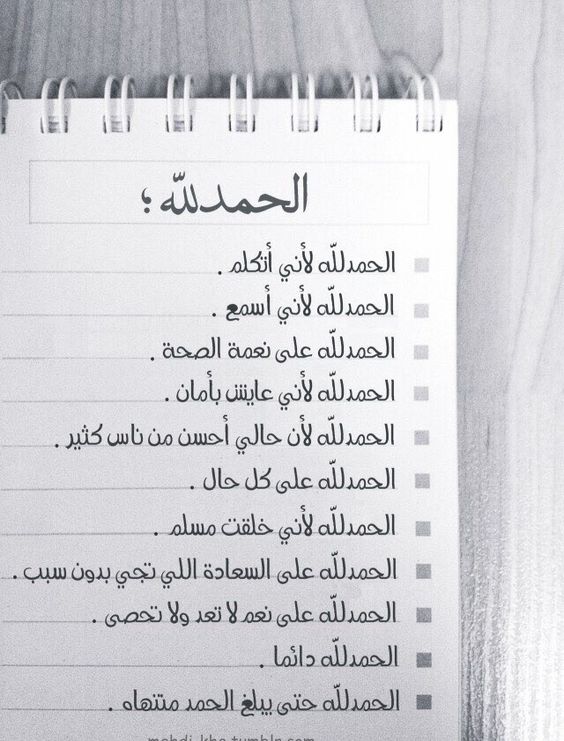 الحمدلله ؛
الحمدلله لأني أتكلم .
الحمدلله لأني أسمع .
الحمدلله على نعمة الصحة .
الحمدلله لأني عايش بأمان .
الحمدلله لأن حالي أحسن من ناس كثير .
الحمدلله على كل حال .
الحمدلله لأني خلقت مسلم .
الحمدلله على السعادة اللي تجي بدون سبب .
الحمدلله على نعم لا تعد ولا تحصى .
الحمدلله دائما .
الحمدلله حتى يبلغ الحمد منتهاه .
mehdi-kho.tumblr.com